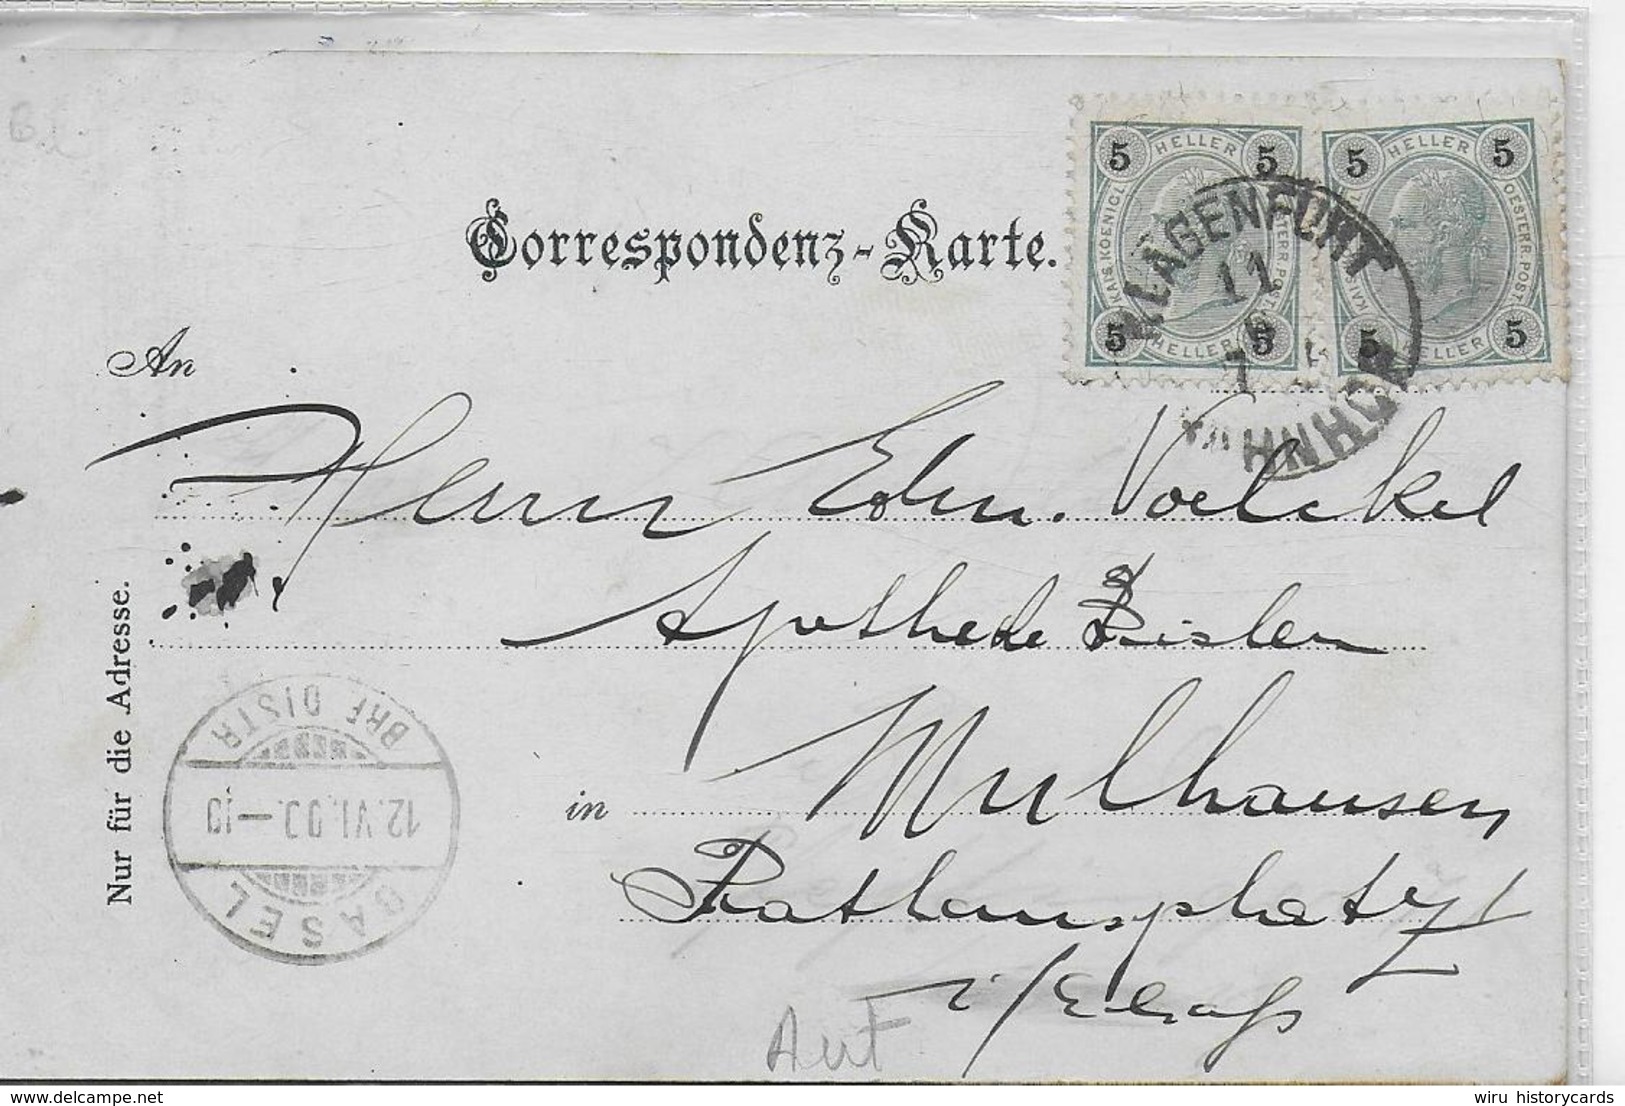 Correspondenz-Karte.
5 HELLER 5
KAIS. KOENIGL. OESTERR. POST
5 HELLER 5
5 HELLER 5
KAIS. OESTERR. POST
5 HELLER 5
KLAGENFURT
11
BAHNHOF
An
Herrn Edm. Voelckel
Apotheke Risler
in Mulhausen
Rathausplatz
i/Elsass
Nur für die Adresse.
BRF. DISTR.
12.VI.00.–10
BASEL
Aut
wiru historycards